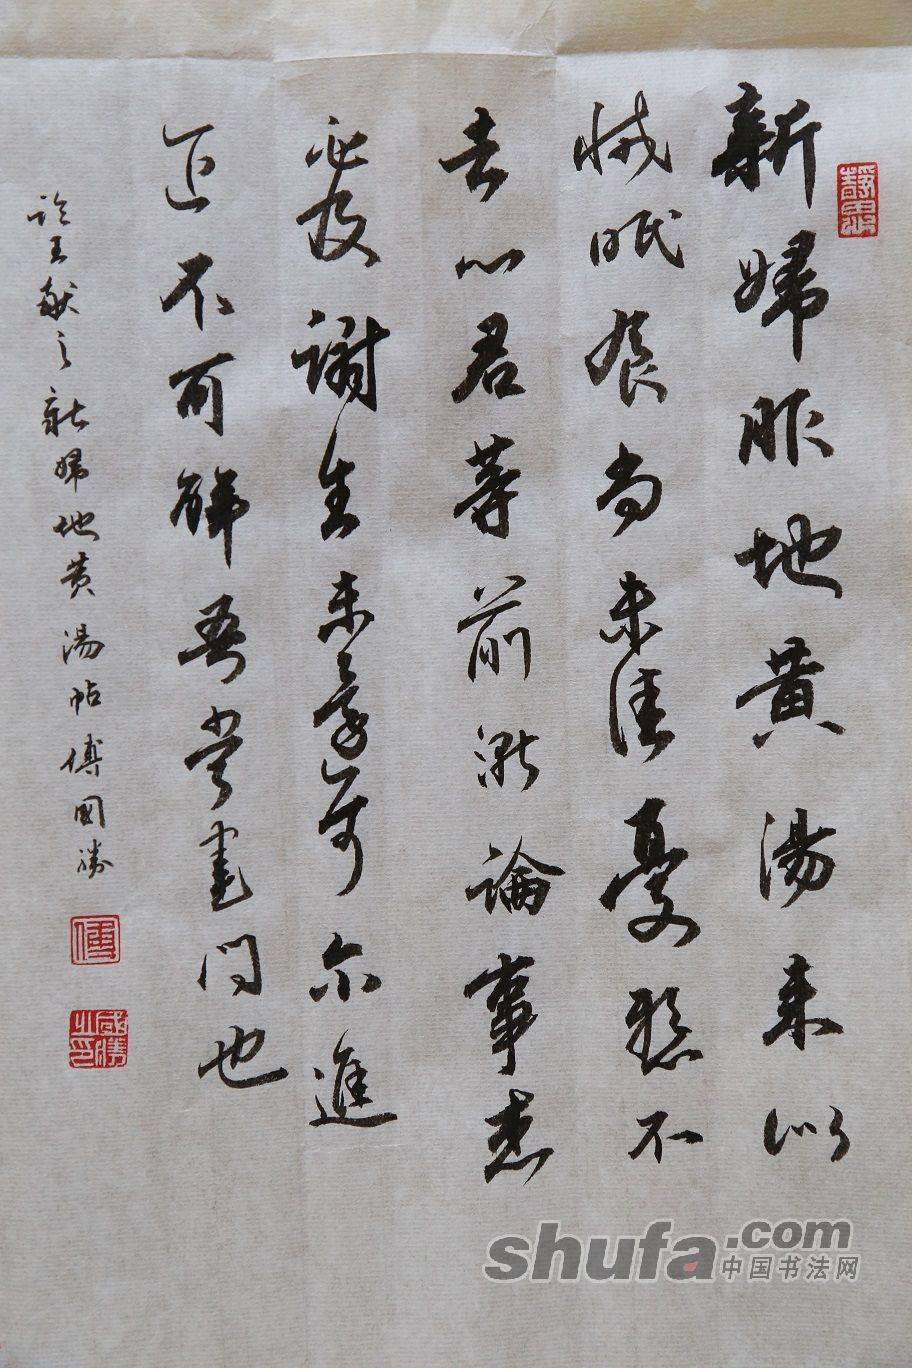 新婦服地黄湯来似
減眠食尚未佳憂懸不
去心君等前所論事想
必及謝生未還可尔進
退不可解吾當書問也
臨王献之新婦地黄湯帖傅國勝
傅
國勝之印
shufa.com
中国书法网